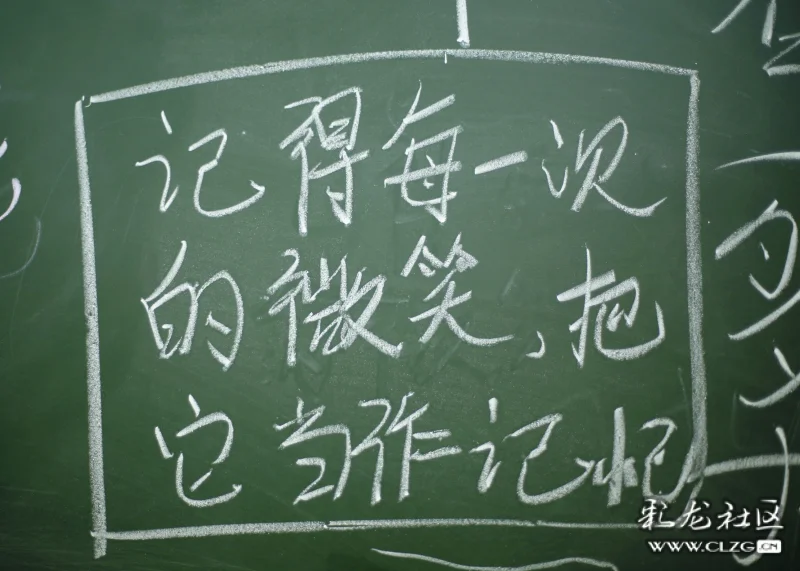 记得每一次
的微笑,把
它当作记忆
彩龙社区
WWW.CLZG.CN